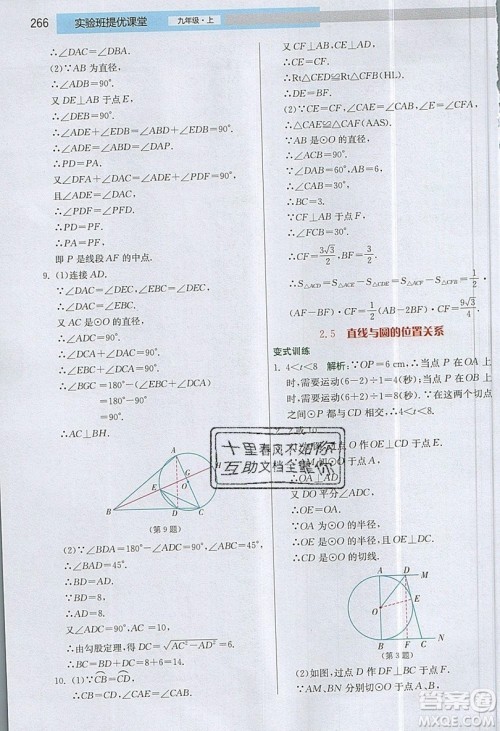 266 实验班提优课堂 九年级·上
∴∠DAC=∠DBC.
(2)∵AB 为直径,
∴∠ADB=90°.
又 DE⊥AB 于点 E,
∴∠DEB=90°.
∴∠ADE+∠EDB=∠ABD+∠EDB=90°.
∴∠ADE=∠ABD=∠DAP.
∴PD=PA.
又∠DFA+∠DAC=∠ADE+∠PDF=90°,
∴∠PDF=∠PFD.
∴PD=PF.
∴PA=PF.
即 P 是线段 AF 的中点.
9. (1)连接 AD.
∵∠DAC=∠DEC,∠EBC=∠DEC,
∴∠DAC=∠EBC.
又 AC 是⊙O 的直径,
∴∠ADC=90°.
∴∠DCA+∠DAC=90°.
∴∠EBC+∠DCA=90°.
∴∠BGC=180°-(∠EBC+∠DCA)=180°-90°=90°.
∴AC⊥BH.
A
H
G
E
O
B
D
C
(第 9 题)
(2)∵∠BDA=180°-∠ADC=90°,∠ABC=45°,
∴∠BAD=45°.
∴BD=AD.
∵BD=8,
∴AD=8.
又∠ADC=90°,AC=10,
∴由勾股定理得 DC=√AC²-AD²=6.
∴BC=BD+DC=8+6=14.
10. (1)∵BC=CD,
∴CB=CD,∠CAE=∠CAB.
又 CF⊥AB,CE⊥AD,
∴CE=CF.
∴Rt△CED≌Rt△CFB(HL).
∴DE=BF.
(2)∵CE=CF,∠CAE=∠CAF,∠CEA=∠CFA,
∴△CAE≌△CAF(AAS).
∵AB 是⊙O 的直径,
∴∠ACB=90°.
∵∠DAB=60°,
∴∠CAB=30°.
∵AB=6,
∴BC=3.
∵CF⊥AB 于点 F,
∴∠FCB=30°.
∴CF=3√3/2,BF=3/2.
∴S△ACD=S△ACE-S△CDE=S△ACF-S△CFB=1/2
(AF-BF)·CF=1/2(AB-2BF)·CF=9√3/4.
2.5 直线与圆的位置关系
变式训练
1. 4<t<8 解析:∵OP=6 cm,∴当点 P 在 OA 上
时,需要运动(6-2)÷1=4(秒);当点 P 在 OB 上
时,需要运动(6+2)÷1=8(秒).∵在这两个切点
之间的⊙P 与直线 CD 相交,∴4<t<8.
十里春风不如你
互助文档全靠你
又 DO 平分∠ADE,
∴OE=OA.
∵OA 为⊙O 的半径,
∴OE 是⊙O 的半径,
∴DE 是⊙O 的切线.
A
D
M
E
O
B
C
N
(第 3 题)
(2)如图,过点 D 作 DF⊥BN 于点 F.
∵AM,BN 分别切⊙O 于点 A,B,
答案圈
MXQE.COM